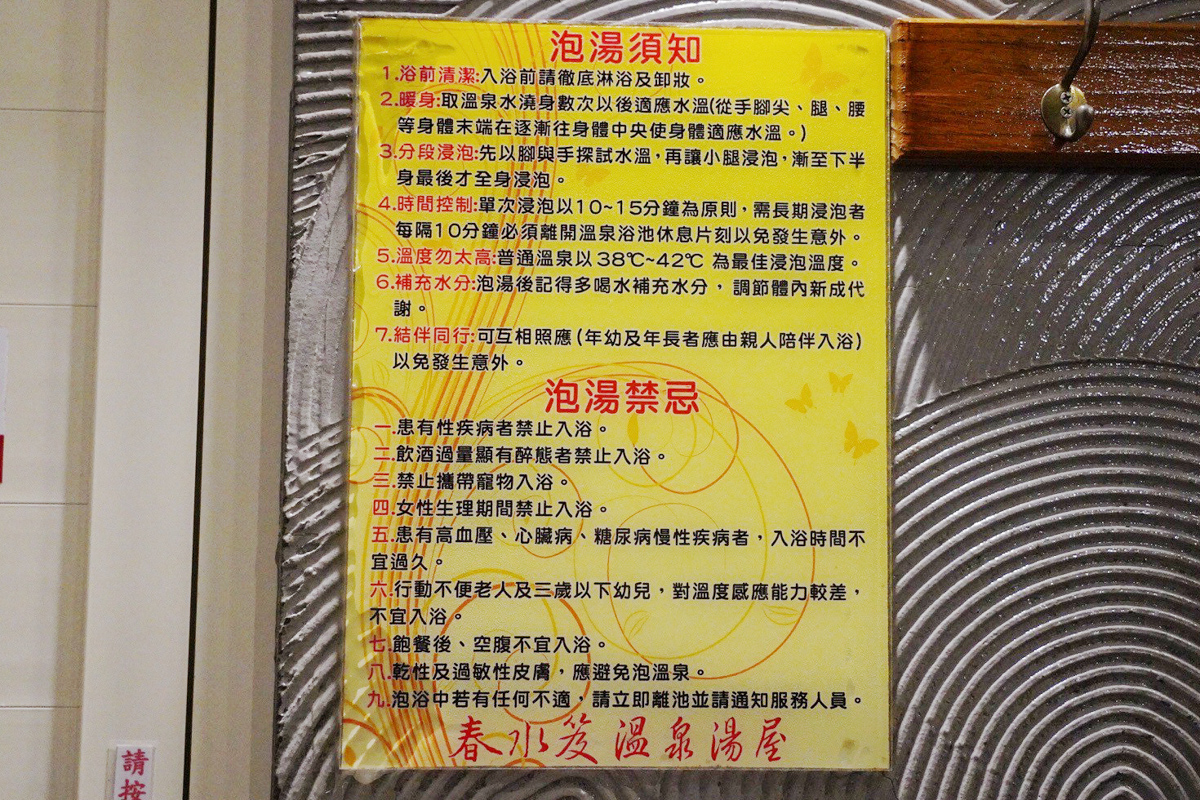 泡湯須知
1.浴前清潔:入浴前請徹底淋浴及卸妝。
2.暖身:取溫泉水澆身數次以後適應水溫(從手腳尖、腿、腰
等身體末端在逐漸往身體中央使身體適應水溫。)
3.分段浸泡:先以腳與手探試水溫,再讓小腿浸泡,漸至下半
身最後才全身浸泡。
4.時間控制:單次浸泡以10~15分鐘為原則,需長期浸泡者
每隔10分鐘必須離開溫泉浴池休息片刻以免發生意外。
5.溫度勿太高:普通溫泉以38℃~42℃ 為最佳浸泡溫度。
6.補充水分:泡湯後記得多喝水補充水分,調節體內新成代
謝。
7.結伴同行:可互相照應(年幼及年長者應由親人陪伴入浴)
以免發生意外。
泡湯禁忌
一.患有性疾病者禁止入浴。
二.飲酒過量顯有醉態者禁止入浴。
三.禁止攜帶寵物入浴。
四.女性生理期間禁止入浴。
五.患有高血壓、心臟病、糖尿病慢性疾病者,入浴時間不
宜過久。
六.行動不便老人及三歲以下幼兒,對溫度感應能力較差,
不宜入浴。
七.飽餐後、空腹不宜入浴。
八.乾性及過敏性皮膚,應避免泡溫泉。
九.泡浴中若有任何不適,請立即離池並請通知服務人員。
春水笈溫泉湯屋
請按